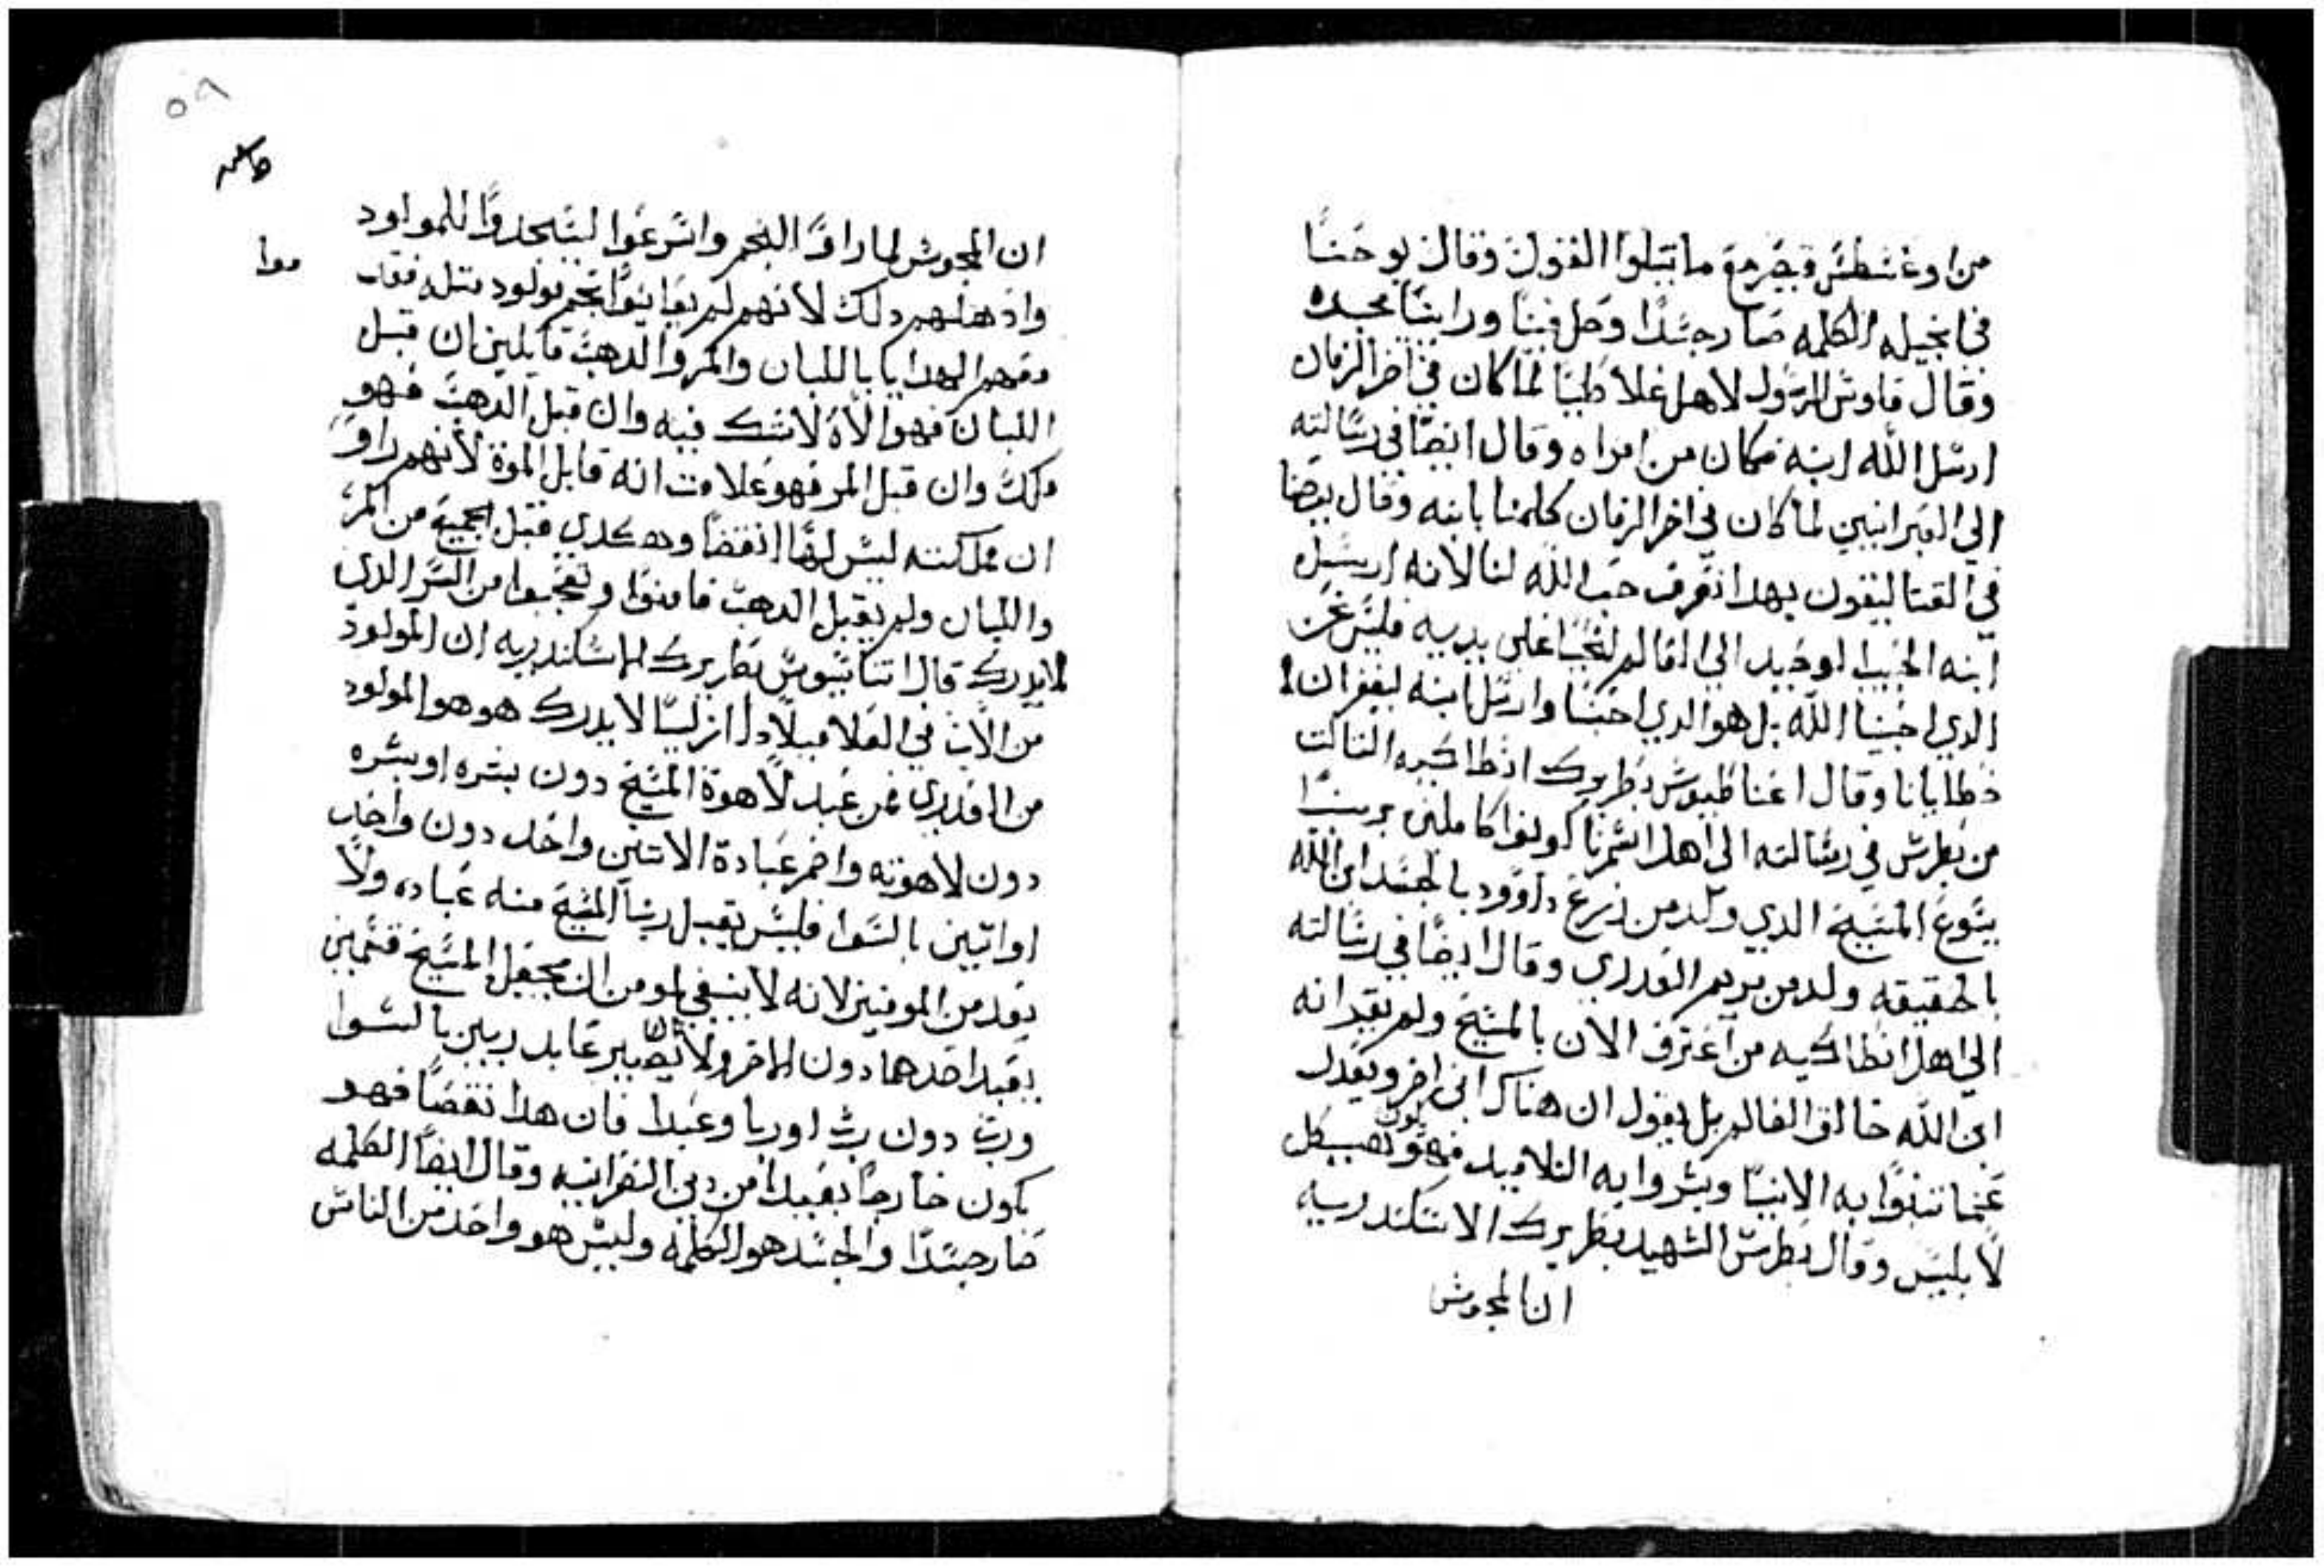 من اوغسطس قيصر مع ما تبلوا القول وقال يوحنا
في انجيله الكلمه صار جسدا وحل فينا وراينا مجده
وقال فاوس الرسول لاهل غلاطيا لما كان في اخر الزمان
ارسل الله ابنه فكان من امراه وقال ايضا في رسالته
الي العبرانيين لما كان في اخر الزمان كلمنا بابنه وقال يوحنا
في القتاليقون بهدا نعرف حب الله لنا لانه ارسل
ابنه الحبيب الوحيد الي العالم لنحيا علي يديه فليس نحن
الدي احببنا الله بل هو الدي احبنا وارسل ابنه ليغفر ان لا
خطايانا وقال اغناطيوس بطريرك انطاكيه التالت
من بطرس في رسالته الي اهل اشمرنا كونوا كاملين بربنا
يسوع المسيح الدي ولد من زرع داوود بالجسد ابن الله
بالحقيقه ولد من مريم العدري وقال ايضا في رسالته
الي اهل انطاكيه من اعترف الان بالمسيح ولم يقر انه
ابن الله خالق العالم بل يقول ان هناك اخر ويعدل
عما تنبوا به الانبيا وبشروا به التلاميد فهو يكون هيكل
لابليس وقال بطرس الشهيد بطريرك الاسكندريه
ان المجوس
٥٩
ان المجوس لما راوا النجم واسرعوا ليسجدوا للمولود
وادهلهم دلك لانهم لم يعاينوا نجم مولود متله فقد
دمهم الهدايا باللبان والمر والدهب قايلين ان قبل
اللبان فهو الاه لا شك فيه وان قبل الدهب فهو
ملك وان قبل المر فهو علامت انه قابل الموة لانهم راوا
ان مملكته ليس لها انقضا وهكدي قبل الجميع من المر
واللبان ولم يقبل الدهب فامنوا وتعجبوا من السر الدي
لا يدرك قال اتناسيوس بطريرك الاسكندريه ان المولود
من الاب في العلا ميلادا ازليا لا يدرك هو هو المولود
من العدري فمن عبد لاهوة المسيح دون بشره او بشره
دون لاهوته واضمر عبادة الاتنين واحد دون واحد
او اتنين بالسوا فليس يقبل ربنا المسيح منه عباده ولا
يعد من المومنين لانه لا ينبغي لمومن ان يجعل المسيح قسمين
يعبد احدهما دون الاخر ولا ان يصير عابد ربين بالسوا
ورب دون رب او ربا وعبدا فان هدا نقضا فهو
يكون خارجا بعيدا من دين النصرانيه وقال ايضا الكلمه
صار جسدا والجسد هو الكلمه وليس هو واحد من الناس